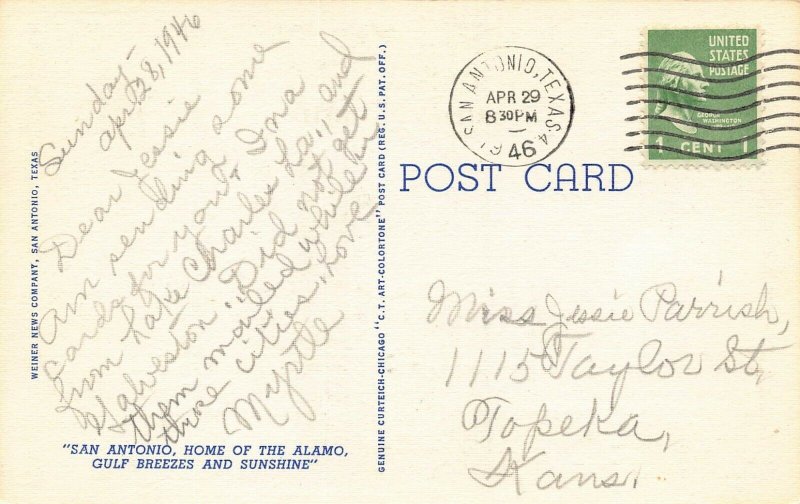 Sunday -
April 28, 1946
Dear Jessie
Am sending some
cards for you & Ina
from Lake Charles La., and
Galveston. Did not get
them mailed while in
those cities. Love
Myrtle
WEINER NEWS COMPANY, SAN ANTONIO, TEXAS
"SAN ANTONIO, HOME OF THE ALAMO,
GULF BREEZES AND SUNSHINE"
GENUINE CURTEICH-CHICAGO "C.T. ART-COLORTONE" POST CARD (REG. U.S. PAT. OFF.)
SAN ANTONIO, TEXAS
APR 29
8 30 PM
1946
4
UNITED
STATES
POSTAGE
GEORGE
WASHINGTON
1 CENT 1
POST CARD
Miss Jessie Parrish,
1115 Taylor St,
Topeka,
Kans.